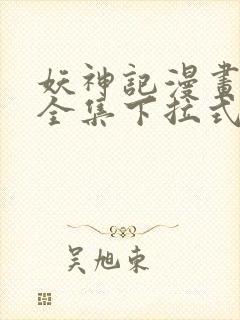 妖神記漫畫
全集下拉式
吴旭东